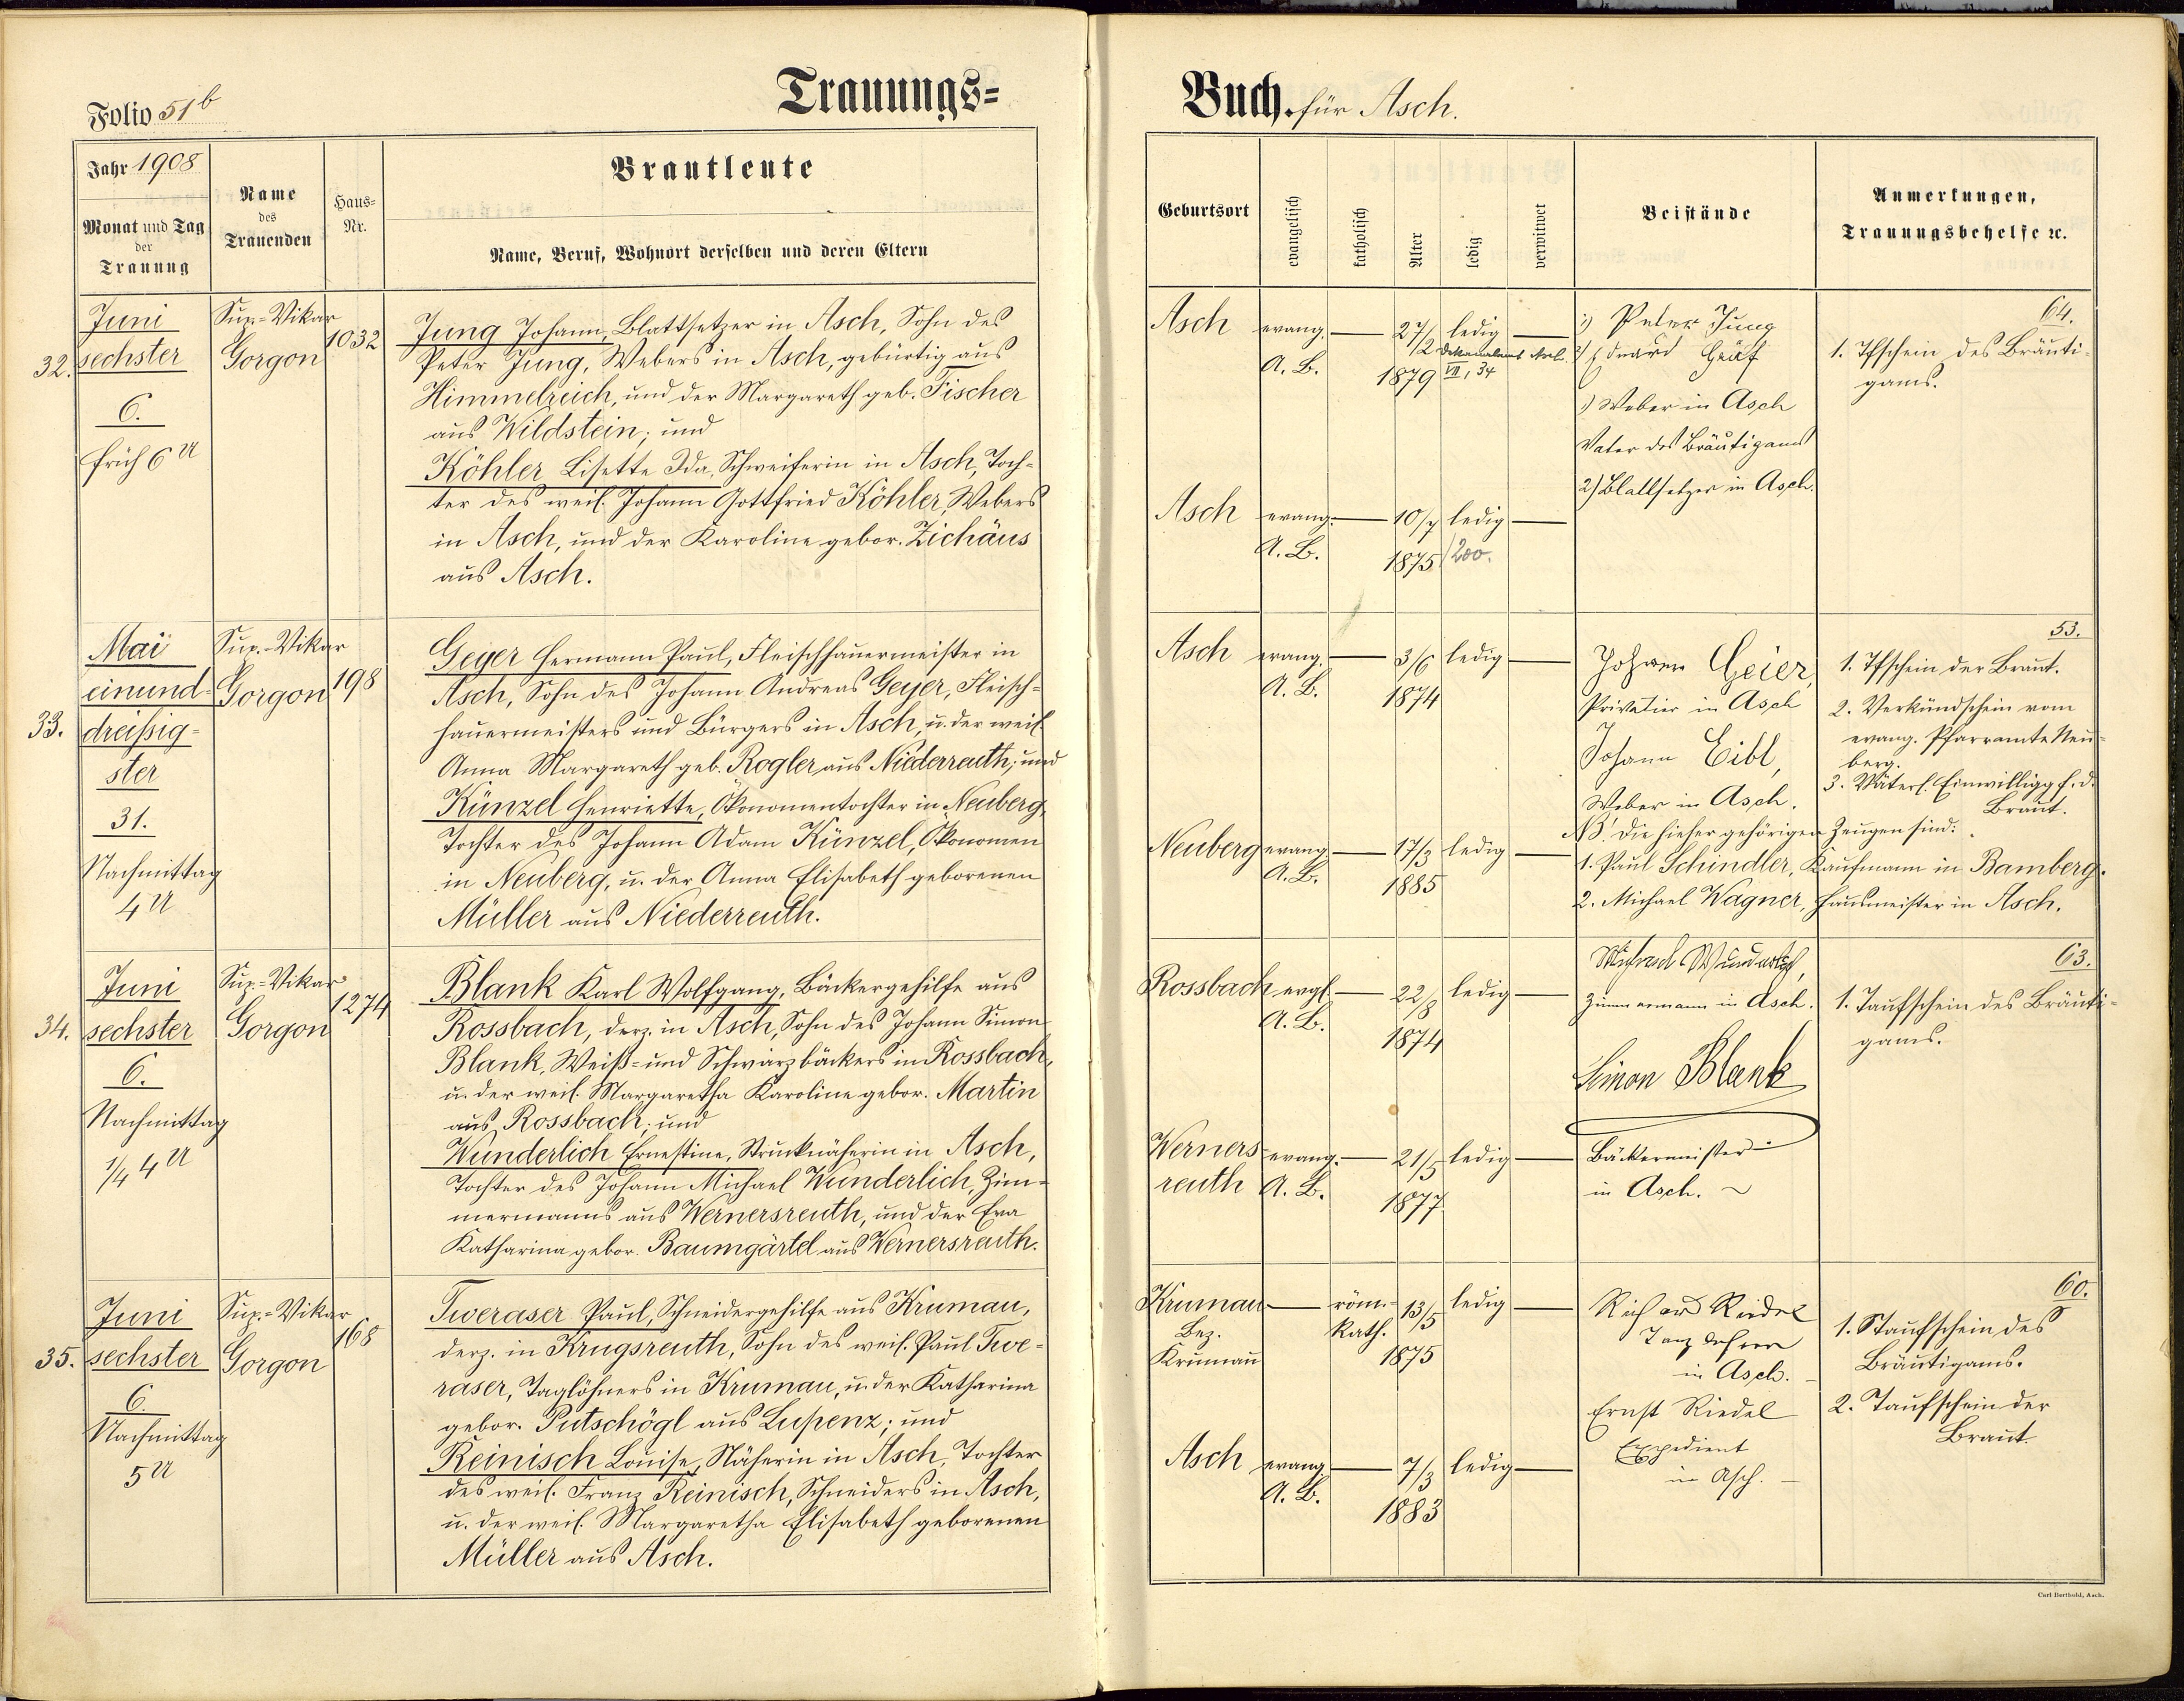 Folio 51b
Trauungs=
Jahr 1908
Monat und Tag
der
Trauung
Name
des
Trauenden
Haus=
Nr.
Brautleute
Name, Beruf, Wohnort derselben und deren Eltern
32.
Juni
sechster
6.
früh 6 U
Sup.-Vikar
Gorgon
1032
Jung Johann, Blattsetzer in Asch, Sohn des
Peter Jung, Webers in Asch, gebürtig aus
Himmelreich, und der Margareth geb. Fischer
aus Wildstein; und
Köhler Lisette Ida, Schweiferin in Asch, Toch-
ter des weil. Johann Gottfried Köhler, Webers
in Asch, und der Karoline gebor. Zichäus
aus Asch.
33.
Mai
einund-
dreißig-
ster
31.
Nachmittag
4 U
Sup.-Vikar
Gorgon
198
Geyer Hermann Paul, Fleischhauermeister in
Asch, Sohn des Johann Andreas Geyer, Fleisch-
hauermeisters und Bürgers in Asch, u. der weil.
Anna Margareth geb. Rogler aus Niederreuth; und
Künzel Henriette, Ökonomentochter in Neuberg,
Tochter des Johann Adam Künzel, Ökonomen
in Neuberg, u. der Anna Elisabeth geborenen
Müller aus Niederreuth.
34.
Juni
sechster
6.
Nachmittag
1/4 4 U
Sup.-Vikar
Gorgon
1274
Blank Karl Wolfgang, Bäckergehilfe aus
Rossbach, derz. in Asch, Sohn des Johann Simon
Blank, Weiß- und Schwarzbäckers in Rossbach,
u. der weil. Margaretha Karoline gebor. Martin
aus Rossbach; und
Wunderlich Ernestine, Strucknäherin in Asch,
Tochter des Johann Michael Wunderlich, Zim-
mermanns aus Wernersreuth, und der Eva
Katharina gebor. Baumgärtel aus Wernersreuth.
35.
Juni
sechster
6.
Nachmittag
5 U
Sup.-Vikar
Gorgon
168
Tweraser Paul, Schneidergehilfe aus Krumau,
derz. in Krugsreuth, Sohn des weil. Paul Twe-
raser, Taglöhners in Krumau, u. der Katharina
gebor. Putschögl aus Lupenz; und
Reinisch Louise, Näherin in Asch, Tochter
des weil. Franz Reinisch, Schneiders in Asch,
u. der weil. Margaretha Elisabeth geborenen
Müller aus Asch.
Buch. für Asch.
Geburtsort
evangelisch
katholisch
Alter
ledig
verwitwet
Beistände
Anmerkungen,
Trauungsbehelfe 2c.
Asch
evang.
A. B.
27/2
1879
ledig
VII, 34
1) Peter Jung
2) Eduard Gräf
1) Weber in Asch
Vater des Bräutigams
2) Blattsetzer in Asch.
64.
1. Tfschein des Bräuti-
gams.
Asch
evang.
A. B.
10/7
1875
ledig
200.
Asch
evang.
A. B.
3/6
1874
ledig
Johann Geier,
Privatier in Asch
Johann Eibl,
Weber in Asch.
53.
1. Tfschein der Braut.
2. Verkündschein vom
evang. Pfarramte Neu-
berg.
3. Väterl. Einwilligg f. d.
Braut.
NB! Die hieher gehörigen Zeugen sind:
1. Paul Schindler, Kaufmann in Bamberg.
2. Michael Wagner, Hausmeister in Asch.
Neuberg
evang.
A. B.
17/3
1885
ledig
Rossbach
evgl.
A. B.
22/8
1874
ledig
Michael Wunderlich,
Zimmermann in Asch.
Simon Blank
Bäckermeister
in Asch.
63.
1. Taufschein des Bräuti-
gams.
Werners-
reuth
evang.
A. B.
21/5
1877
ledig
Krumau
Bez.
Krumau
röm.
Kath.
13/5
1875
ledig
Richard Riedel
Tanzlehrer
in Asch.
Ernst Riedel
Expedient
in Asch.
60.
1. Staufschein des
Bräutigams.
2. Taufschein der
Braut.
Asch
evang.
A. B.
7/3
1883
ledig
Carl Berthold, Asch.